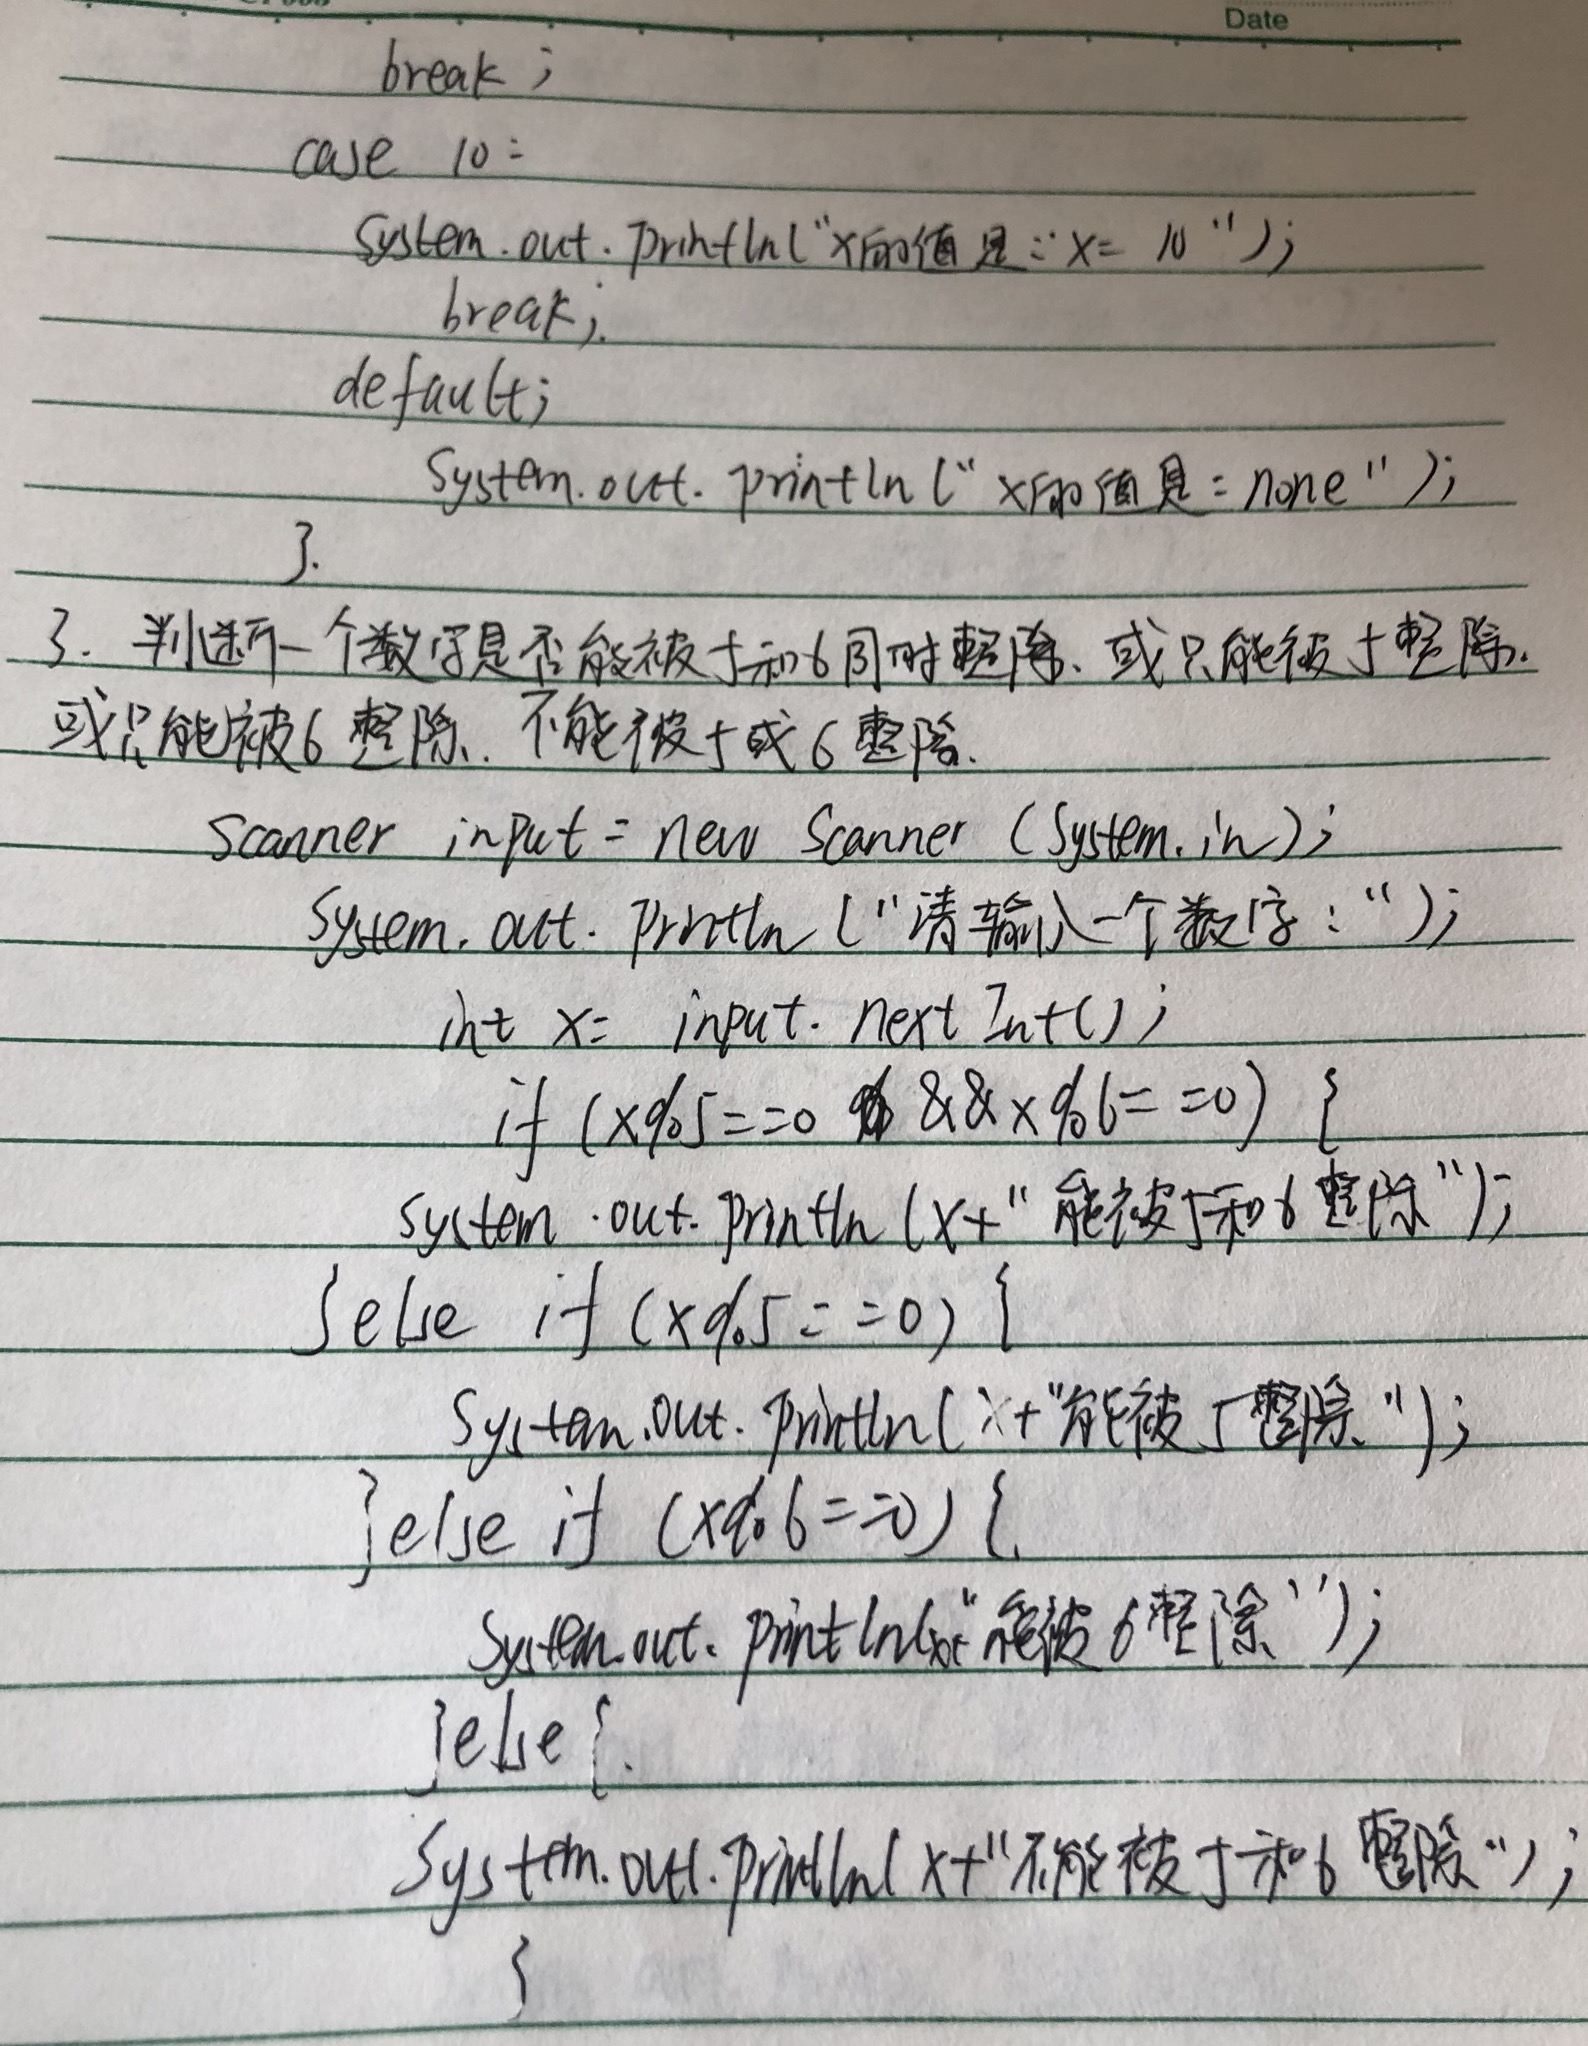 Date
break;
case 10:
System.out.println("x的值是:x= 10");
break;
default;
System.out.println("x的值是:none");
}.
3. 判断一个数字是否能被5和6同时整除、或只能被5整除.
或只能被6整除. 不能被5或6整除.
Scanner input = new Scanner (System.in);
System.out.println("请输入一个数字:");
int x= input.nextInt();
if (x%5==0 && x%6==0) {
System.out.println(x+"能被5和6整除");
}else if (x%5==0) {
System.out.println(x+"能被5整除");
}else if (x%6==0) {
System.out.println(x+"能被6整除");
}else{
System.out.println(x+"不能被5和6整除");
}